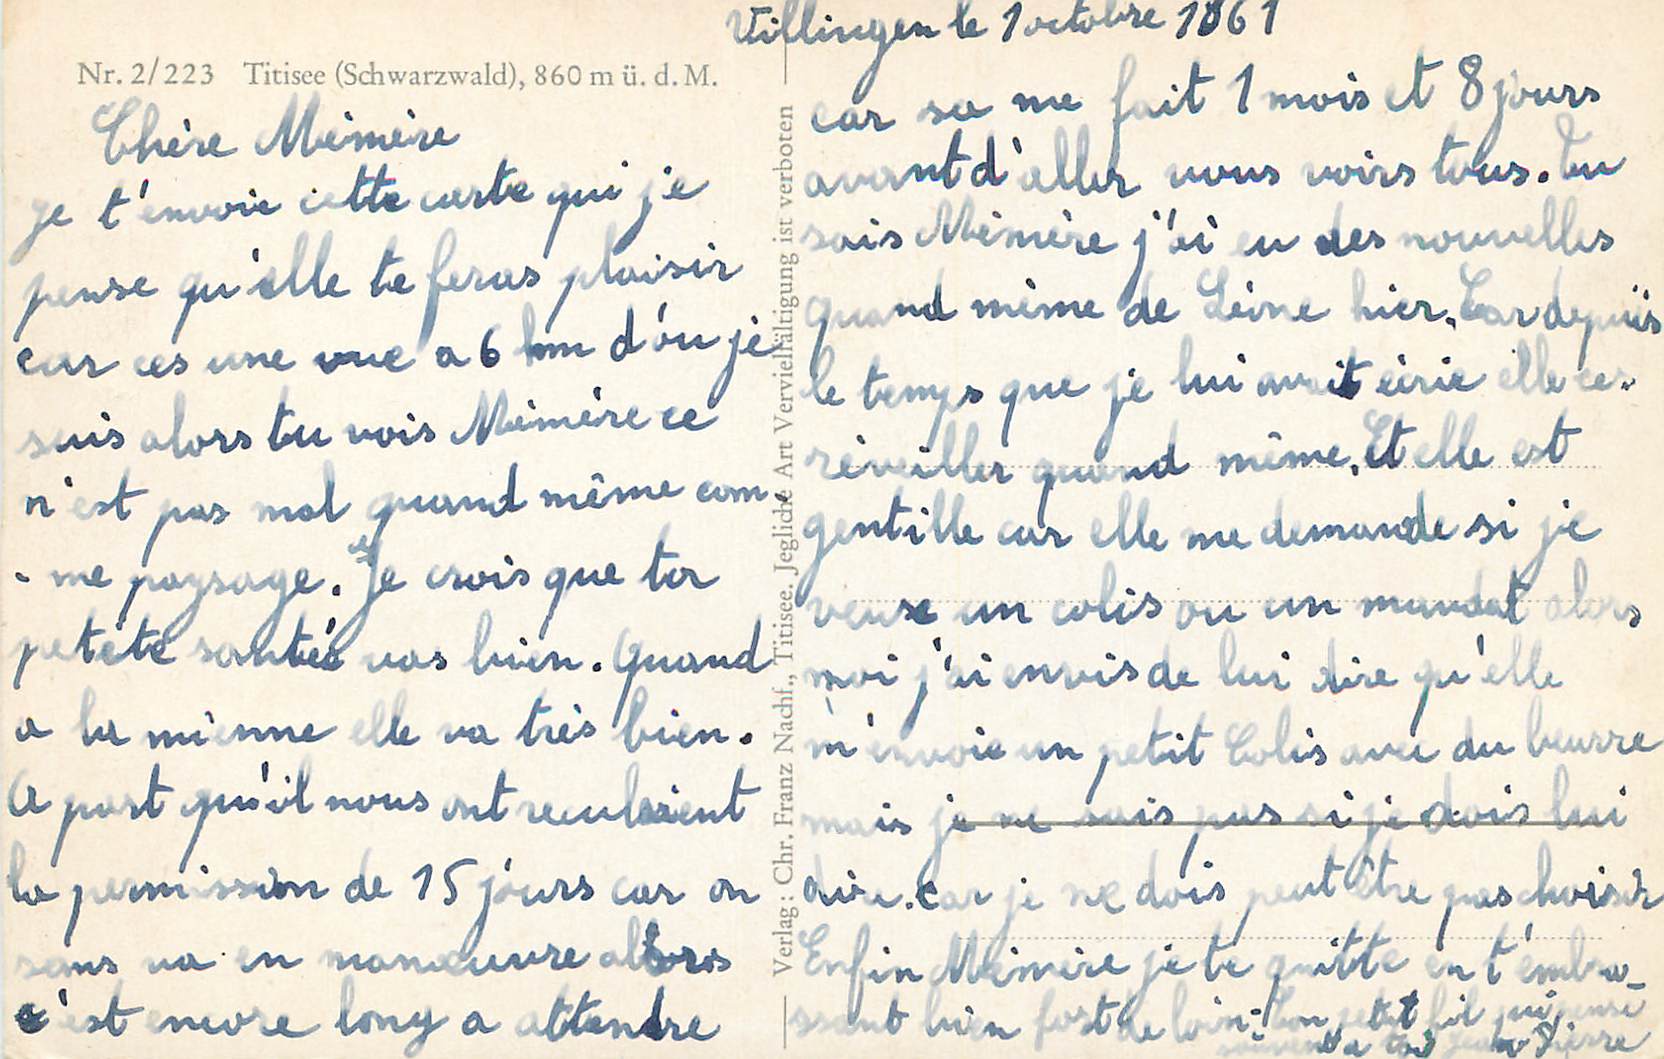 Villingen le 1 octobre 1861
Nr. 2/223 Titisee (Schwarzwald), 860 m ü. d. M.
Chère Mémère
je t'envoie cette carte qui je
pense qu'elle te feras plaisir
car ces une vue a 6 km d'ou je
suis alors tu vois Mémère ce
n'est pas mal quand même com-
-me paysage. Je crois que ta
petete santée vas bien. Quand
a la mienne elle va très bien.
A part qu'il nous ont reculaient
la permission de 15 jours car on
sans va en manœuvre alors
c'est encore long a attendre
Verlag: Chr. Franz Nachf., Titisee. Jegliche Art Vervielfältigung ist verboten
car sa me fait 1 mois et 8 jours
avant d'aller vous voirs tous. Tu
sais Mémère j'ai eu des nouvelles
quand même de Léone hier. Car depuis
le temps que je lui avait écrie elle ce.
réveiller quand même. Et elle est
gentille car elle me demande si je
veuse un colis ou un mandat alors
moi j'ai envis de lui dire qu'elle
m'envoie un petit Colis avec du beurre
mais je ne sais pas si je dois lui
dire. Car je ne dois peut être pas choisir
Enfin Mémère je te quitte en t'embra-
ssant bien fort de loin. Ton petit fil qui pense
souvent a toi Jean Pierre